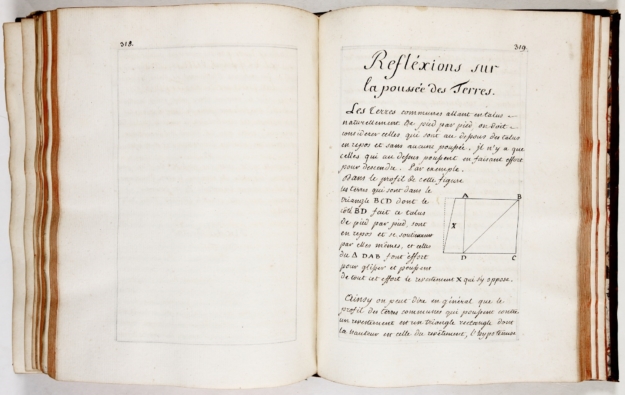 318.
319.
Refléxions sur
la poussée des Terres.
Les terres communes allant en talus
naturellement de pied par pied, on doit
considerer celles qui sont au dessous des talus
en repos et sans aucune poussée. il n'y a que
celles qui au dessus poussent en faisant effort
pour descendre. Par exemple.
Dans le profil de cette figure
les terres qui sont dans le
triangle BCD dont le
côté BD fait ce talus
de pied par pied, sont
en repos et se soutiennent
par elles mêmes, et celles
du Δ DAB font effort
pour glisser et poussent
de tout cet effort le revêtement X qui s'y oppose.
A B
X
D C
Ainsy on peut dire en général que le
profil des terres communes qui poussent contre
un revêtement est un triangle rectangle dont
la hauteur est celle du revêtement, l'hypoténus